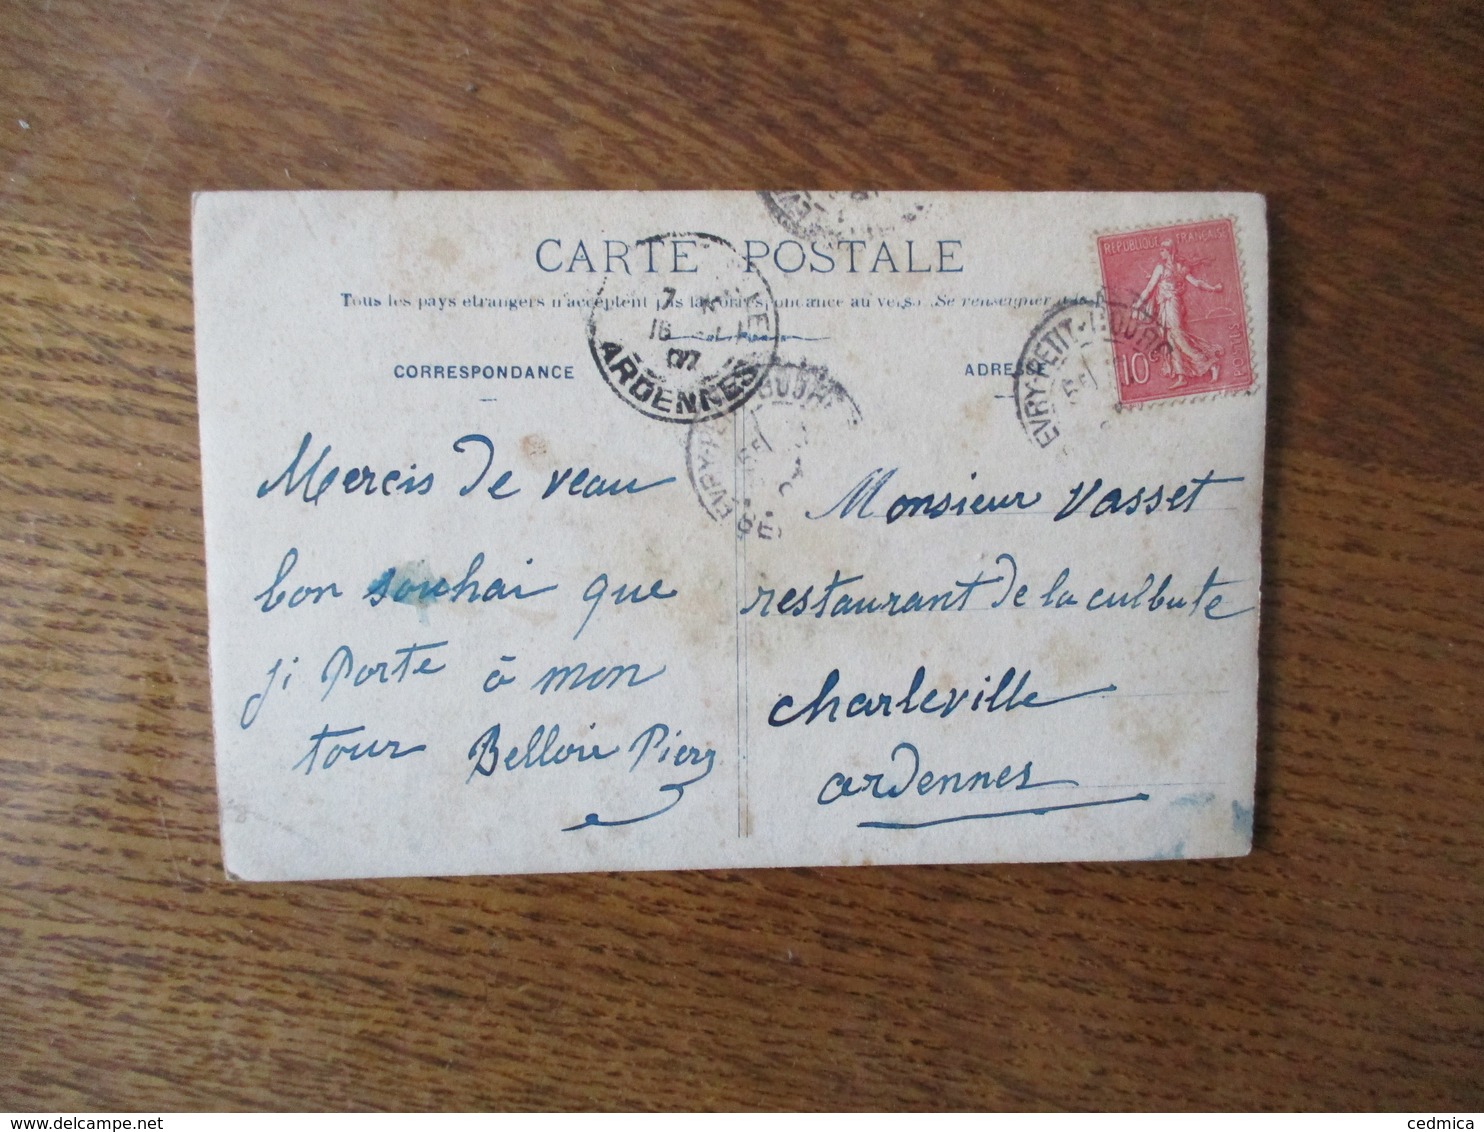 CARTE POSTALE
Tous les pays etrangers n'acceptent pas la correspondance au verso. Se renseigner à la
CORRESPONDANCE
ADRESSE
REPUBLIQUE FRANÇAISE
10
POSTES
EVRY-PETIT-BOURG
7
16
07
ARDENNES
Mercis de veau
bon souhai que
ji Porte à mon
tour Belloie Piery
Monsieur Vasset
restaurant de la culbute
charleville
ardennes
cedmica